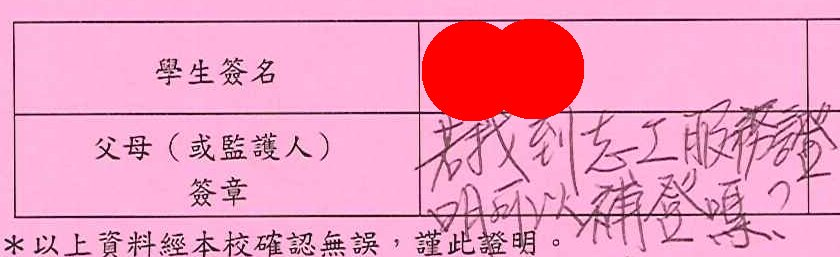 學生簽名
父母（或監護人）
簽章
若我到志工服務證
明可以補登嗎？
＊以上資料經本校確認無誤，謹此證明。